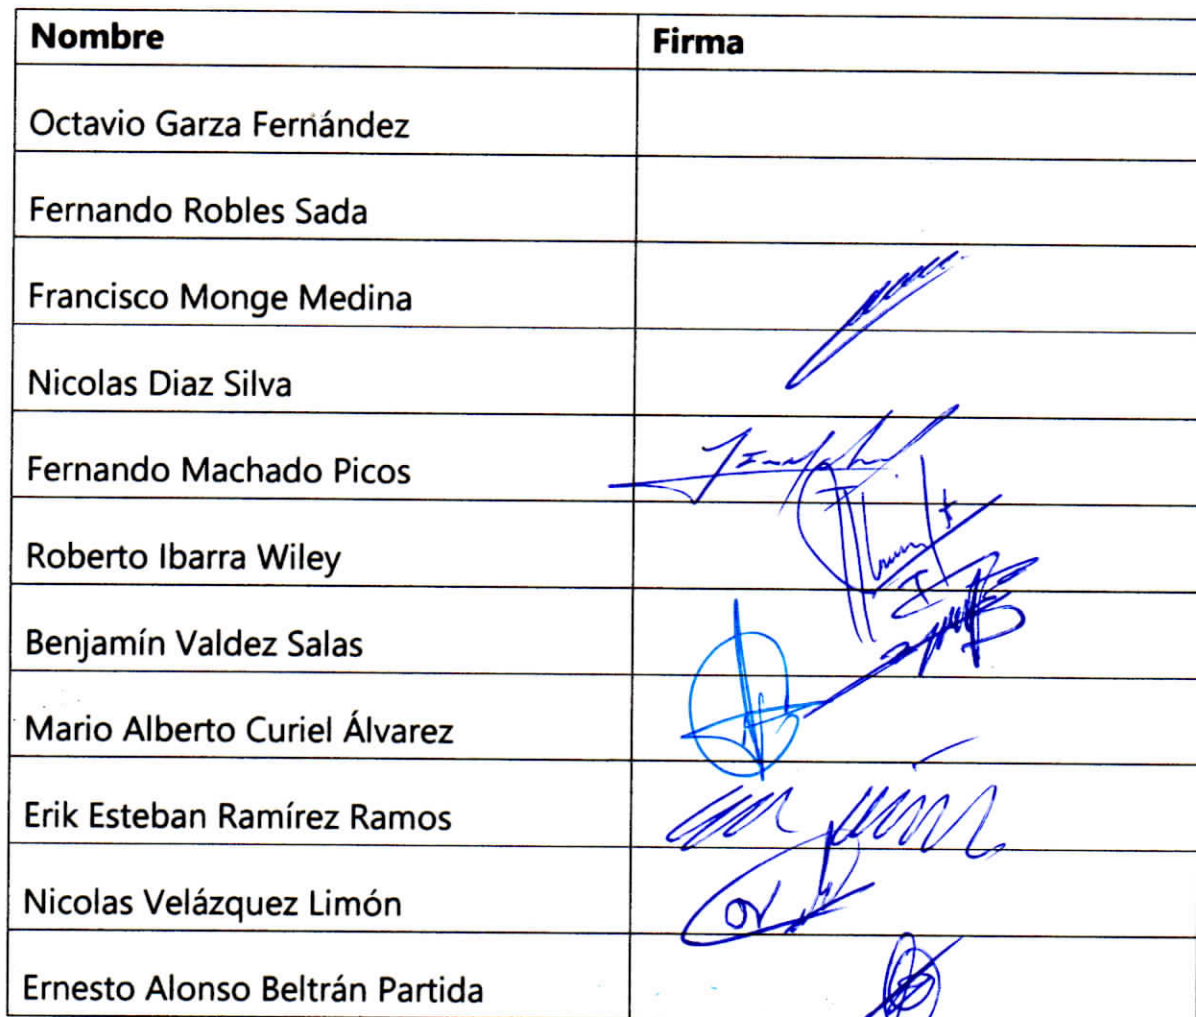 Nombre Firma
Octavio Garza Fernández
Fernando Robles Sada
Francisco Monge Medina
Nicolas Diaz Silva
Fernando Machado Picos
Roberto Ibarra Wiley
Benjamín Valdez Salas
Mario Alberto Curiel Álvarez
Erik Esteban Ramírez Ramos
Nicolas Velázquez Limón
Ernesto Alonso Beltrán Partida